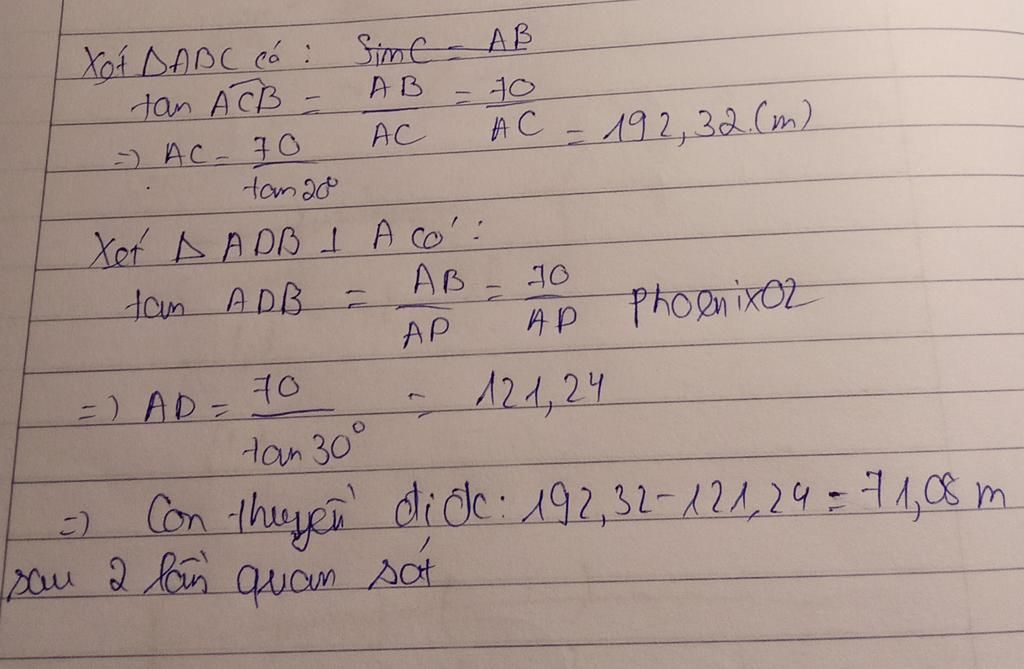 Xét ΔABC có : SinC = AB
tan ACB = AB/AC = 70/AC
=> AC = 70/tan20° = 192,32 (m)
Xét Δ ADB ⊥ A có :
tan ADB = AB/AD = 70/AD Phoenix02
=> AD = 70/tan30° = 121,24
=> Con thuyền đi đc : 192,32 - 121,24 = 71,08 m
sau 2 lần quan sát